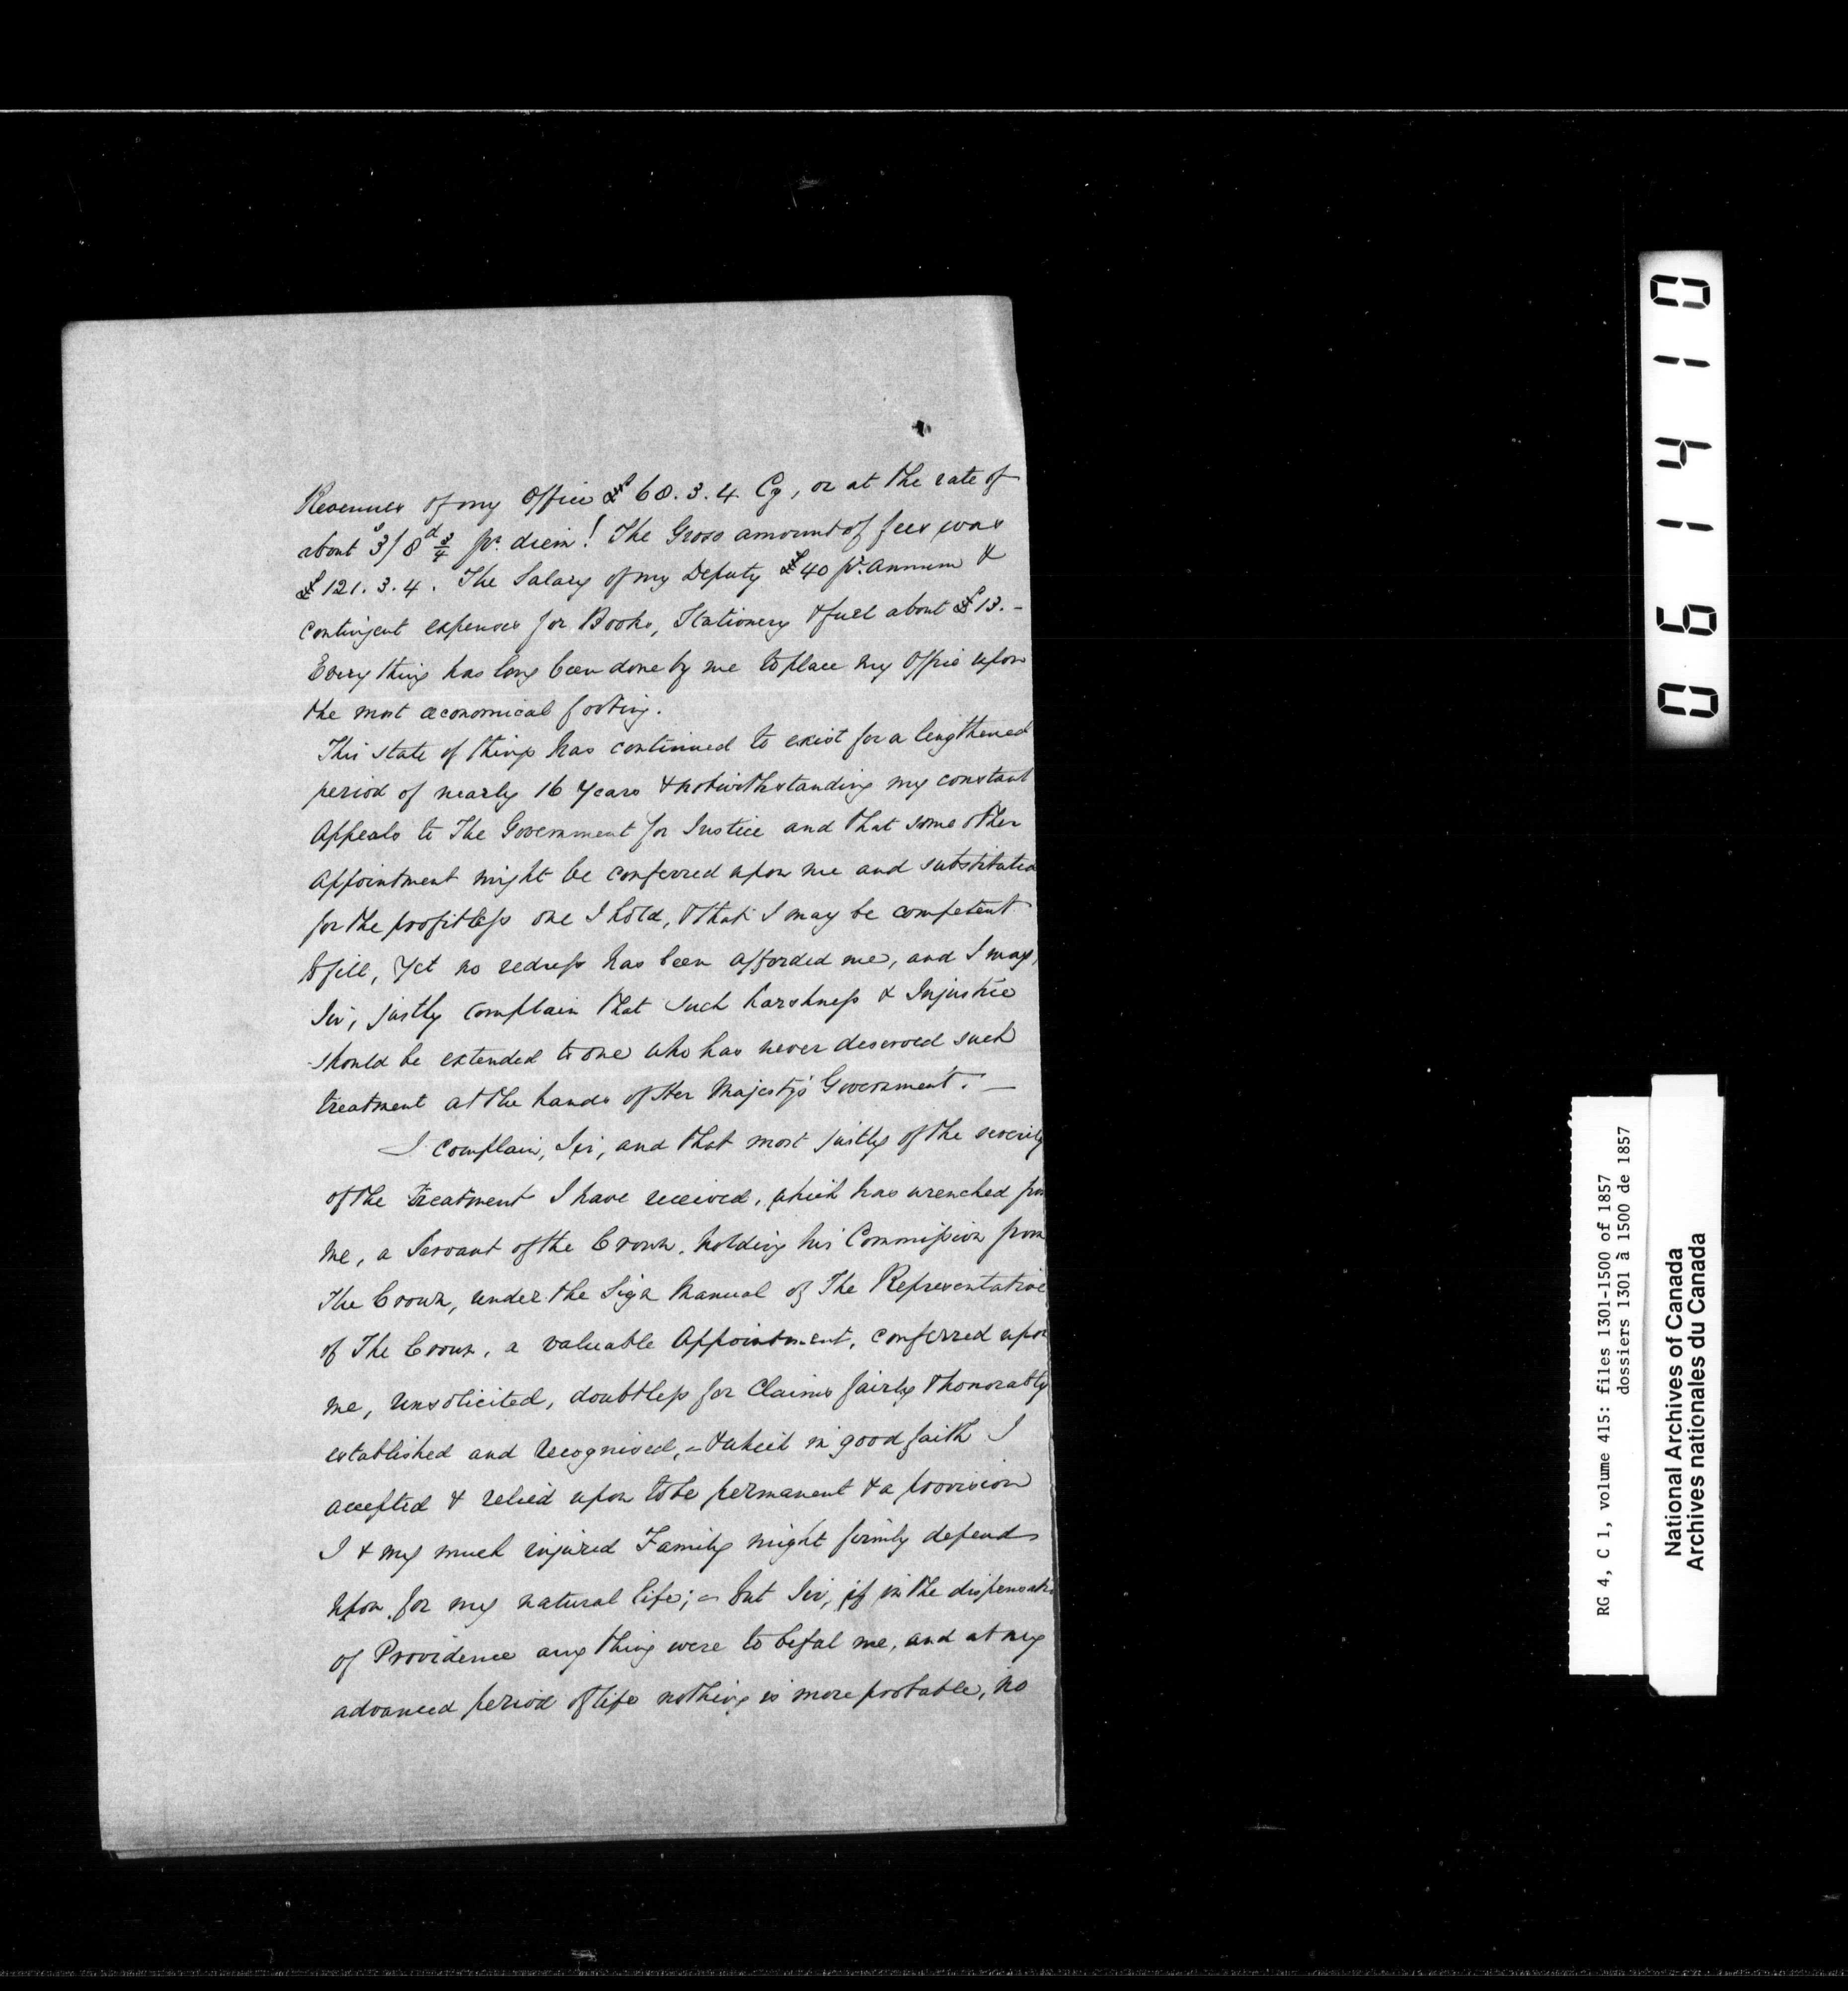 Revenues of my Office £68.3.4 Cy, or at the rate of
about 3s/8d¾ pr. diem! The Gross amount of fees was
£121.3.4. The Salary of my Deputy £40 pr. Annum &
contingent expenses for Books, Stationery & fuel about £13.-
Every thing has long been done by me to place my Office upon
the most œconomical footing.
This state of things has continued to exist for a lengthened
period of nearly 16 Years & notwithstanding my constant
Appeals to The Government for Justice and that some other
Appointment might be conferred upon me and substituted
for the profitless one I hold, & that I may be competent
to fill, Yet no redress has been afforded me, and I may,
Sir, justly complain that such harshness & Injustice
should be extended to one who has never deserved such
treatment at the hands of Her Majesty's Government. —
I complain, Sir, and that most justly of the severity
of the treatment I have received, which has wrenched from
me, a Servant of the Crown, holding his Commission from
The Crown, under the Sign Manual of The Representative
of The Crown, a valuable Appointment, conferred upon
me, unsolicited, doubtless for Claims fairly & honorably
established and recognised, – & which in good faith I
accepted & relied upon to be permanent & a provision
I & my much injured Family might firmly depend
upon for my natural life; – but Sir, if in the dispensatio
of Providence any thing were to befal me, and at my
advanced period of life nothing is more probable, no
06140
RG 4, C 1, volume 415: files 1301-1500 of 1857
dossiers 1301 à 1500 de 1857
National Archives of Canada
Archives nationales du Canada